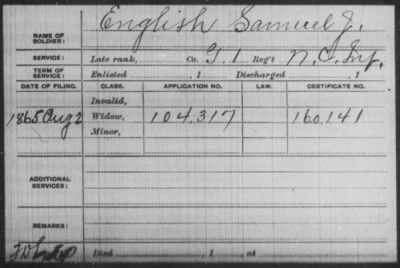 English Samuel J.
NAME OF SOLDIER:
SERVICE: Late rank, Co. G. 1 Reg't N.C. Inf.
TERM OF SERVICE: Enlisted , 1 Discharged , 1
DATE OF FILING. CLASS. APPLICATION NO. LAW. CERTIFICATE NO.
Invalid,
1865 Aug 2 Widow, 104.317 160.141
Minor,
ADDITIONAL SERVICES:
REMARKS:
Died , 1 , at